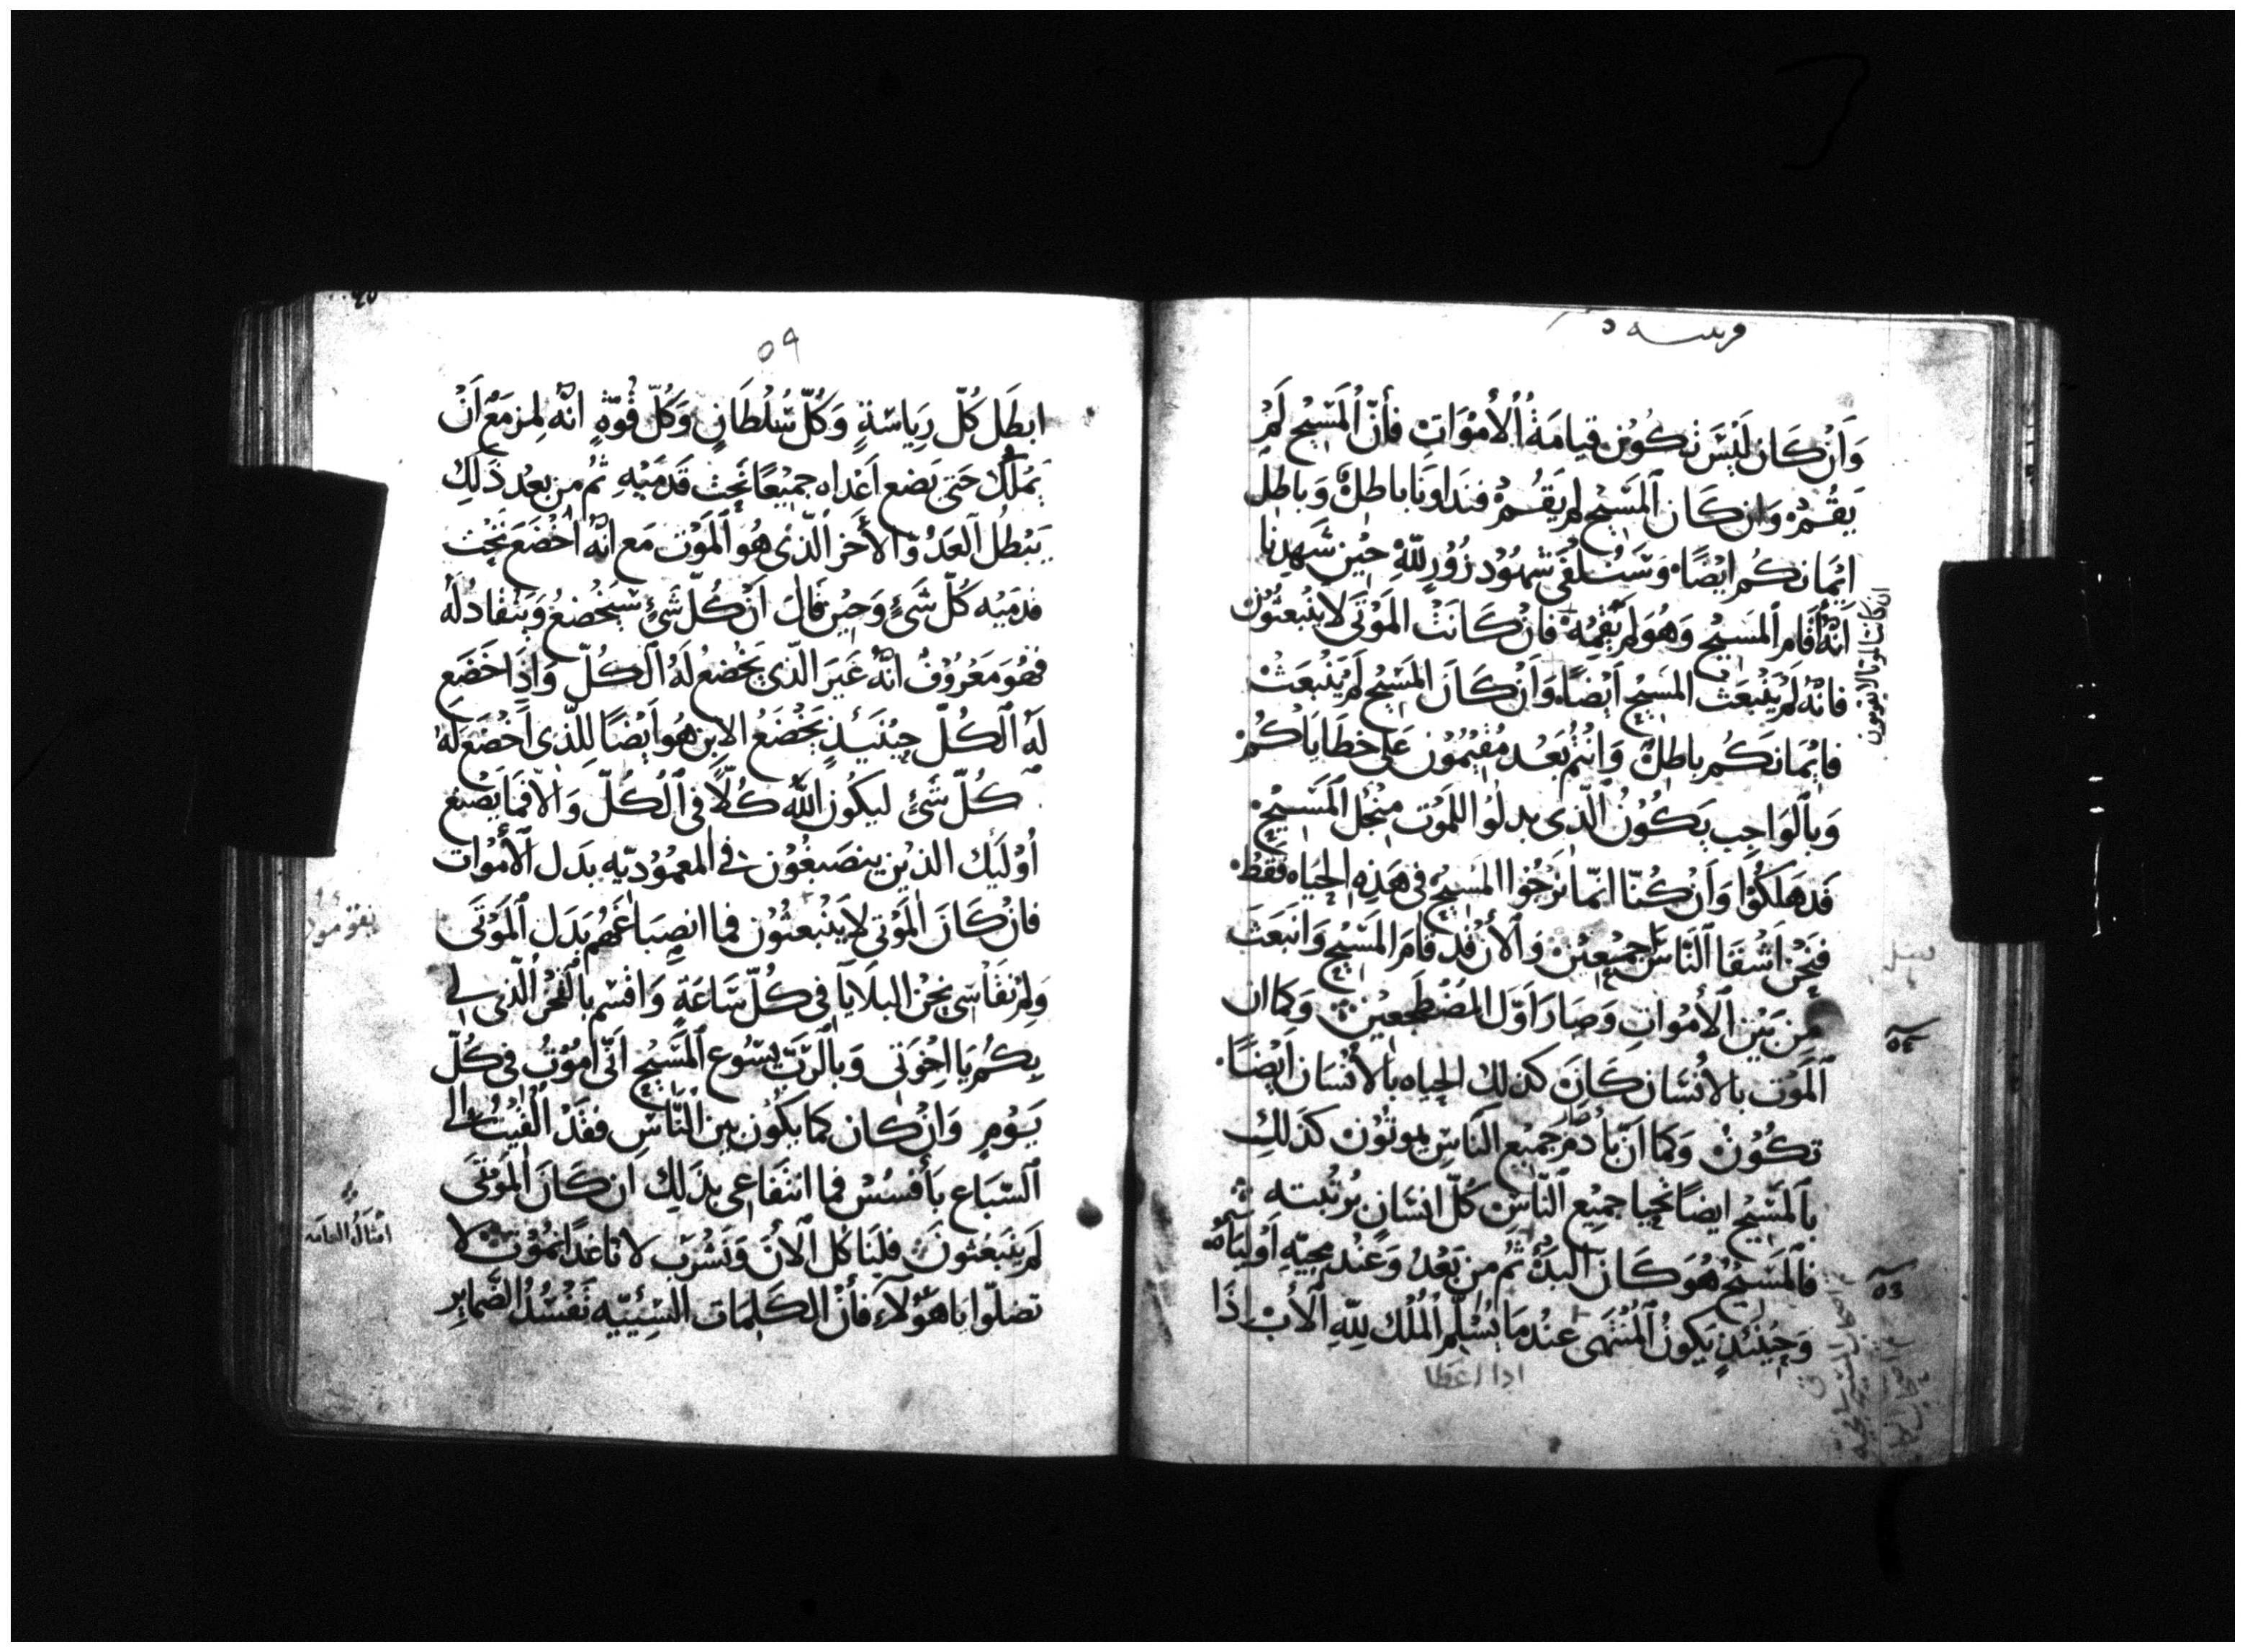 وَاَنْ كَان لَيْسَ تكُوْن قيامَةُ اُلاُموَاتِ فأنّ اُلمَسِيْح لَمْ
يَقُمْ وَان كَان اَلمَسِّيْح لم يَقُمْ فندَاونَا باطلٌ وَباطِل
ايْمانكُم ايْضًا وَسَنُلفَى شهُوْد زُوْرٍ للّهِ حيْن شَهِدنا
اَنّهُ اَقَام اَلمَسيْح وَهُوَ لم يُقِمْهُ فانْ كَانَتْ المَوْتَى لا ينْبعثُوْن
فانّه لَمْ يَنْبَعَثْ المَسِيْح اَيْضًا وَاَنْ كَانَ المَسِّيْح لَمْ يَنْبَعَثْ
فايْمَانكَُم باطلٌ وَانتُم بَعْد مُقيْمُوْن عَلى خطَايَاكُمْ
وَباَلوَاجب يَكُوْنُ الّذى بدلُوْا اللمَوْت مِنْجْل اَلمَسِيْح
قَد هَلكُوْا وَاَنْ كُنّا انّما نرَجُوْا المَسيْح فى هَذِهِ الحَيَاه فَقَطْ
فنَحْن اَشْقَا اَلنَّاسْ جميْعيْن وَاَلاَنْ قدْ قَامَ المَسّيْح وَانْبَعَثَ
من بَيْن اَلأمْوات وَصَارَ اَوّلَ المُضْطَجعيْن وَكَما ان
اَلمَوْت بالاُنسَان كَانَ كذلك الحياه بالاُنْسَان اَيْضًا
تكُوْنْ وَكَمَا اَنّ بادَمَ جَميْع النَاسِ يموتُوْن كذلك
باَلمَسِّيْح ايضًا يحيا جميْع النّاسْ كلّ انسَان برتْبته
فاَلمَسّيْحُ هُوَ كَانَ البَدُؤْ ثُمّ من بَعْدُ وَعنْد مجيّهِ اَوْليَاهُ
وَحيْنَئذٍ يَكونْ اَلمُنْتَهى عنْد مَا يُسْلِم اُلمُلْك للّهِ اَلاَبْ اذَا
ان كانت الموتا لا يقومون
٥٢
٥٣
٥٩
ابطَل كُلّ رِيَاسَةٍ وَكُلّ سُلْطَانٍ وَكُلّ قُوّةٍ انّه لمزمَعْ اَنْ
يَمْلكُ حَتى يَضع اَعْداه جميْعًا تَحتْ قَدمَيْهِ ثُم من بعْد ذَلكَ
يَبْطلُ اَلعَدُوّ الأَخر اَلّذى هُو اَلمَوْت مَع انّهُ اخْضَعَ تحْت
قدمَيْه كُلّ شَئٍ وَحيْن قَالَ اَنْ كُلّ شَئٍ سَيخْضعُ وَيَنْقَاد لَهُ
فهُوَ مَعْرُوْفٌ انّهُ غَيَر الّذى يَخْضعُ لهُ اَلكُلّ وَاذَا خَضَع
لَهُ اَلكُلّ حيْنَيذٍ يَخْضَعُ الابن هُو اَيْضًا لِلّذى اَخْضَعَ لهُ
كُلّ شَئٍ ليكُون اللّه كُلّاً فى اَلكُلّ وَالاّ فمَا يَصْنع
اُوْلَيك الذيْن ينصَبغُوْن فى المعمُوْديّه بدَل اَلأمْوات
فانْ كَانَ المَوْتى لا يَنْبعثُوْن فما انصِبَاغَهم بَدَل اَلمَوْتَى
وَلم نقَاسِى نحن البلاَيا فى كُلّ سَاعَةٍ وَاقْسم باَلفخْر الّذى لى
بِكُم يَا اخْوَتى وَباَلرّبّ يَسُوع اَلمَسّيْح اَنّى اموْتُ فى كُلّ
يَوْم وَانْ كَان كمَا يَكُوْن بين النّاس فقَدْ اُلقيْتُ الى
اَلسّبَاع بأَفسُسْ فما انْتفَاعى بذَلِكْ ان كَانَ اَلمَوْتَى
لم ينبَعثونَ فلنَاكل اَلاَنَ وَنَشْرَب لاننا غدًا نمُوْت لا
تضلّوا يا هَؤلاءِ فأنْ اَلكلِمَات السّيئيّه تَفسُدُ الضّماير
امثال العامه